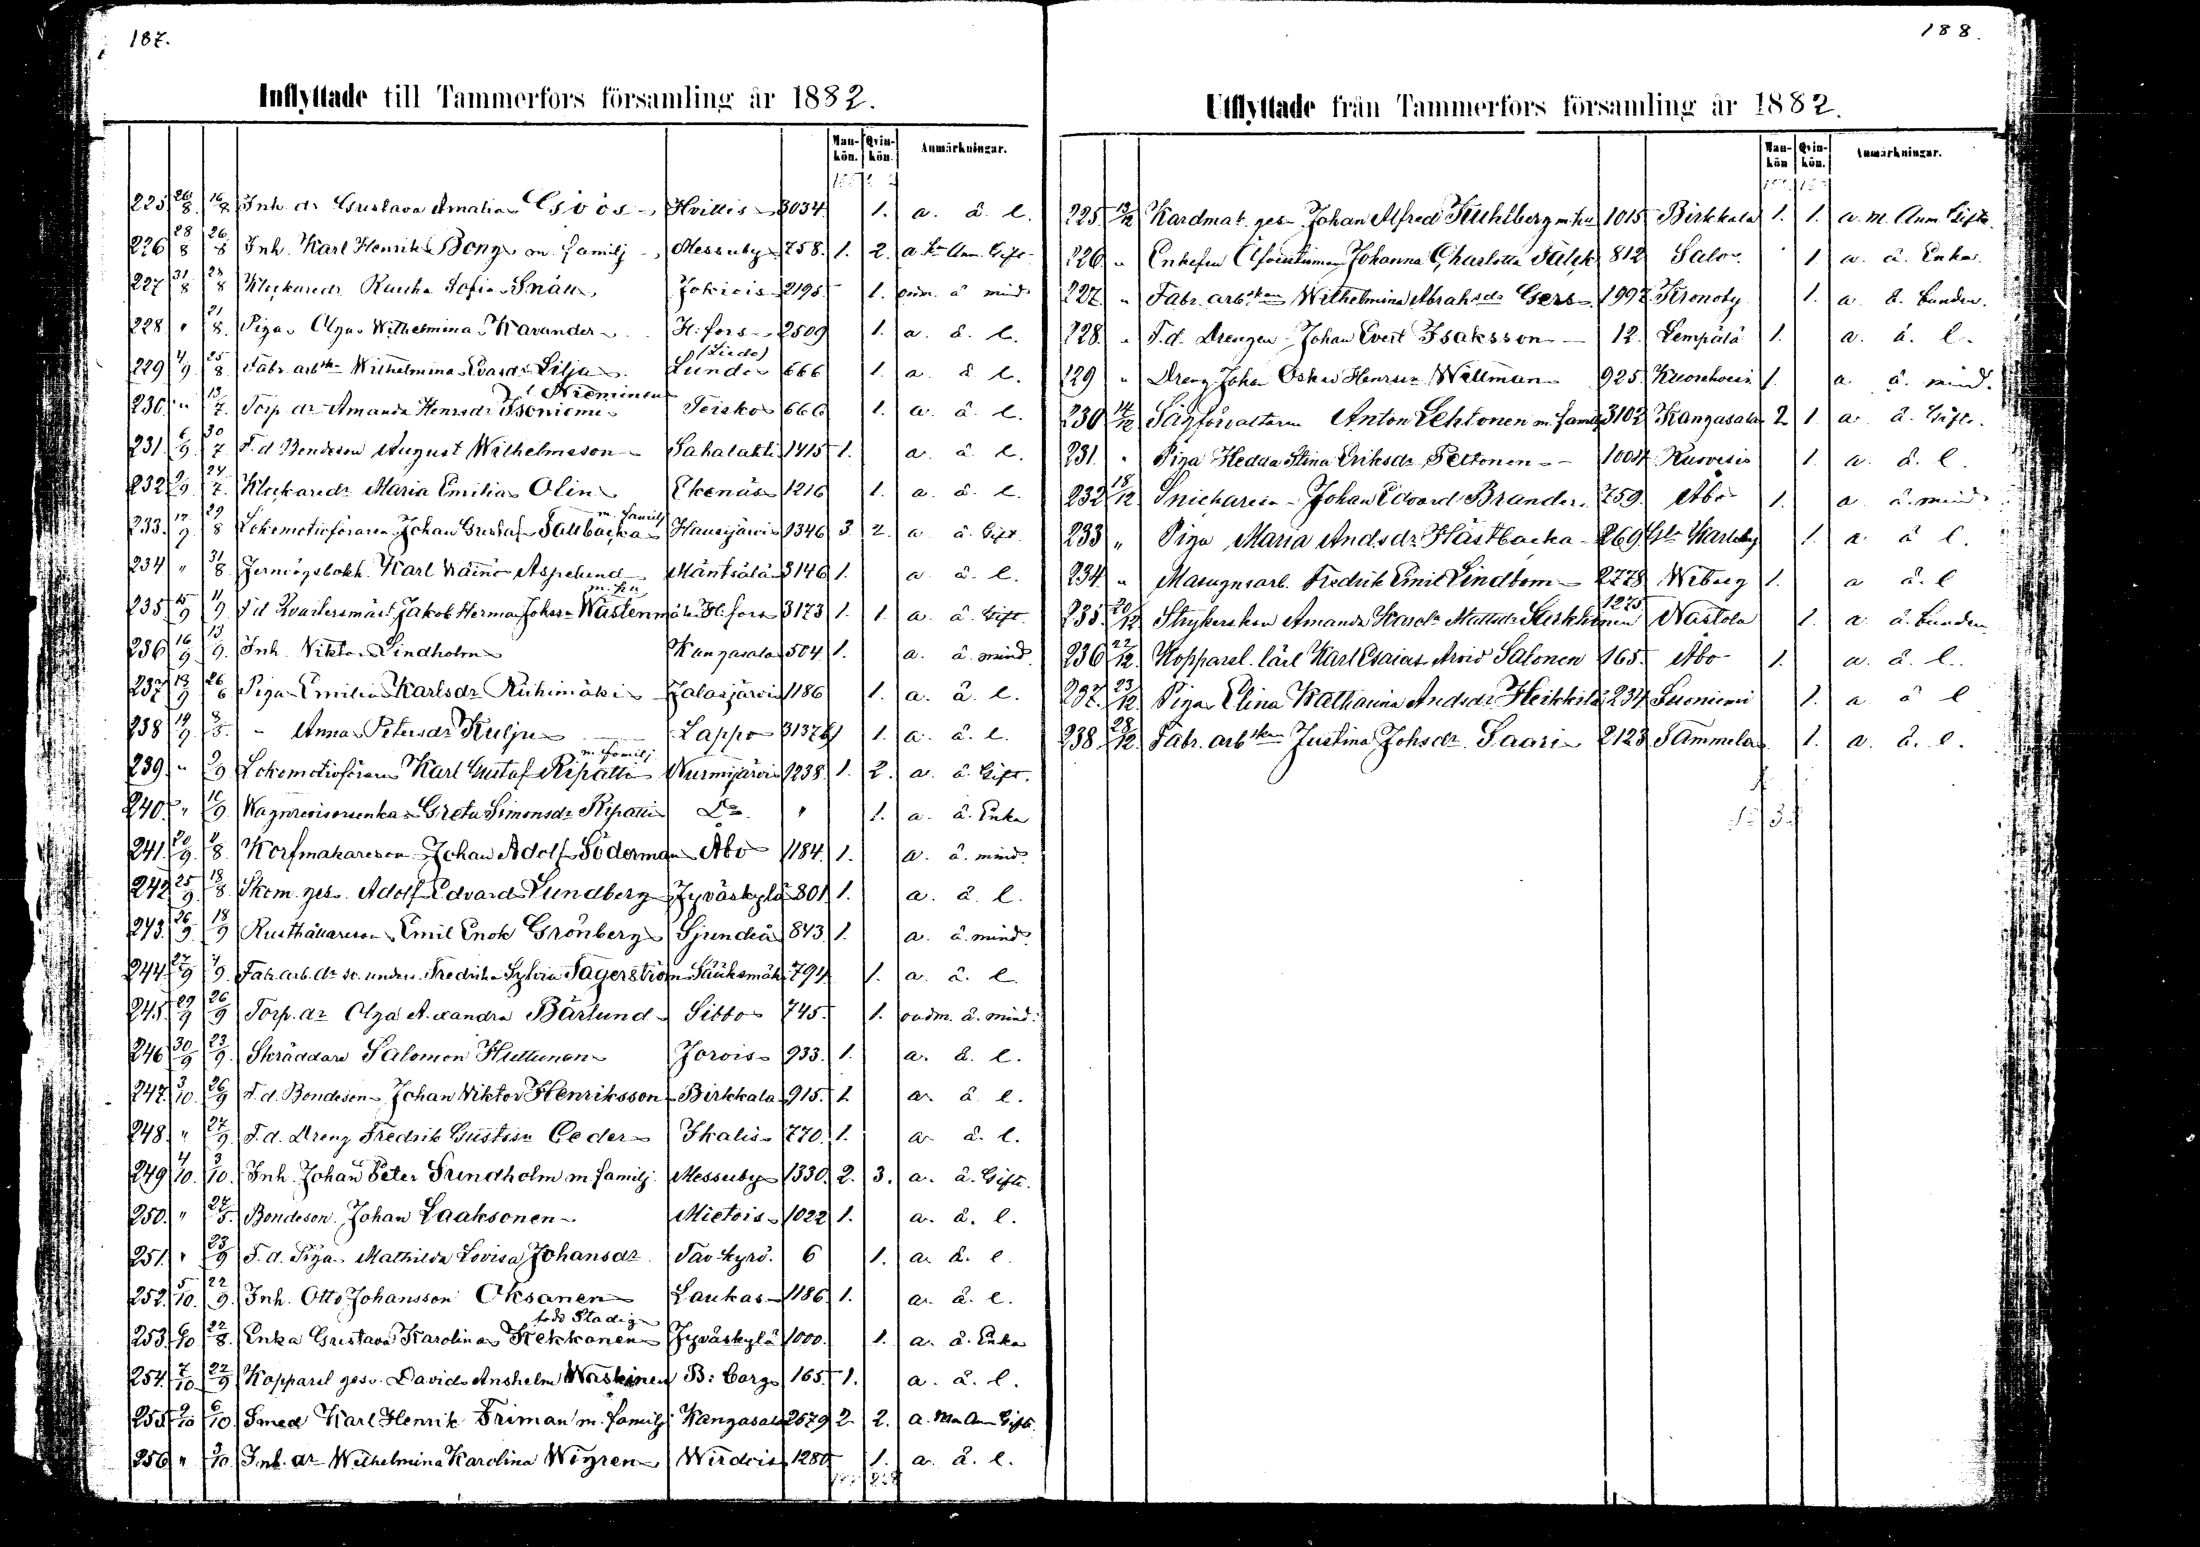 187.
Inflyttade till Tammerfors församling år 1882.
Mankön. Qvinkön. Anmärkningar.
225 28/8 16/8 Inh. dr Gustava Amalia Hvittis 3034 1. a. å. l.
226 28/8 26/8 Inh. Karl Henrik Bong m. familj Messuby 758. 1. 2. Gift
227 31/8 28/8 Sofia Snäll Jokicis 2195 1. å mind
228 " 21/8. Piga Olga Wilhelmina Karander H:fors 2509 1. a. å. l.
229 4/9 25/8. Fabr. arbskn Wilhelmina Lilja Lundo (Liedo) 666 1. a. å. l.
230. " 13/7. Torp. dr Amanda Henrsdr Isoniemi Nieminen Teisko 666 1. a. å. l.
231. 6/9 30/7 F. d. Bondeson August Wilhelmsson Sahalaks 1415 1. a. å. l.
232 9/9 24/7. Klockaredr Maria Emilia Olin Ekenäs 1216 1. a. å. l.
233. 12/9 29/8 Lokomotivföraren Johan Gustaf Sallbacka m. familj Hausjärvi 1346 3 2. a. å. Gift
234 " 31/8 Jernvägsbokh. Karl Wäinö Aspelund Mäntsälä 3146 1. a. å. l.
235 15/9 11/9 F d Jakob Herman Johsson Wästenmäki m. hu H:fors 3173 1. 1. a. å. Gift.
236 16/9 13/9. Inh. Viktor Lindholm Kangasala 504 1. a. å. mind.
237 18/9 26/6 Piga Emilia Karlsdr Riihimäki Jalasjärvi 1186 1. a. å. l.
238 19/9 8/5. " Anna Petersdr Kulju Lappo 31376 1. a. å. l.
239 " 9/9 Lokomotivförare Karl Gustaf Ripatti m. familj Nurmijärvi 1238. 1. 2. a. å. Gift.
240. " 16/9. Greta Simonsdr Ripatti Do. " 1. a. å. Enka
241. 20/9. 8/8. Korfmakareson Johan Adolf Söderman Åbo 1184. 1. a. å. mind.
242 25/9. 18/8 Skom. ges. Adolf Edvard Lundberg Jyväskylä 801. 1. a. å. l.
243. 26/9. 18/9 Rusthållareson Emil Enok Grönberg Sjundeå 843. 1. a. å. mind.
244. 27/9 4/9. Fab. arb. dr Fredrika Sylvia Fagerström Sääksmäki 794. 1. a. å. l.
245. 29/9 26/9 Torp. dr Olga Alexandra Bärlund Sibbo 745. 1. å. mind.
246 30/9 23/9. Skräddare Salomon Huttunen Jorois 933. 1. a. å. l.
247. 3/10. 26/9 F. d. Bondeson Johan Viktor Henriksson Birkkala 915. 1. a. å. l.
248. " 27/9. F. d. Dreng Fredrik Gustsson Ceder Ikalis 770. 1. a. å. l.
249 4/10. 3/10. Inh. Johan Peter Sundholm m. familj. Messuby 1330. 2. 3. a. å. Gifte.
250. " 24/5. Bondeson Johan Laaksonen Mietois 1022 1. a. å. l.
251. " 23/9 F. d. Piga Mathilda Lovisa Johansdr Tavkyrö. 6 1. a. å. l.
252. 5/10. 22/9. Inh. Otto Johansson Oksanen Laukas 1186 1. a. å. l.
253. 6/10 22/8. Enka Gustava Karolina Kekkonen född Stadig Jyväskylä 1000. 1. a. å. Enka
254. 7/10 22/9 Kopparsl. ges. David Anshelm Waskinen B:borg 165. 1. a. å. l.
255. 9/10 6/10. Smed Karl Henrik Friman m. familj Kangasala 2679 2 2. Gifte
256 " 3/10. Inh. dr Wilhelmina Karolina Wigren Wirdois 1280 1. a. å. l.
188.
Utflyttade från Tammerfors församling år 1882.
Mankön Qvinkön. Anmärkningar.
225. 13/12 Kardmak. ges. Johan Alfred Kuhlberg m. hu 1015 Birkkala 1. 1. a. m. Anm Gifte.
226. " Johanna Charlotta Falck 812 Salo 1 a. å. Enka.
227. " Fabr. arbskan Wilhelmina Abrahsdr Gers 1997 Kronoby 1. a. å. bunden.
228. " F. d. Drengen Johan Evert Isaksson 12. Lempälä 1. a. å. l.
229 " Dreng Johan Oskar Henrsson Wallman 925. Kuorehvesi 1. a. å. mind.
230 14/12 Sågförvaltaren Anton Lehtonen m. familj 3102 Kangasala 2 1 a. å. Gifte.
231. " Piga Hedda Stina Eriksdr Peltonen 1004 Kurvesi 1. a. å. l.
232 18/12 Snickareson Johan Edvard Brander 759. Åbo 1. a. å. mind.
233 " Piga Maria Andsdr Hästbacka 269 Gla Karleby 1. a. å. l.
234 " Masugnsarb. Fredrik Emil Lindbom 2778 Wiborg 1. a. å. l
235. 20/12 Strykerskan Amanda Karola Mattsdr 1275 Nastola 1. a. å. bunden
236 22/12. Kopparsl. lärl. Karl Esaias Arvid Salonen 165. Åbo 1. a. å. l.
237. 23/12. Piga Elina Katharina Andsdr Heikkilä 234 Suoniemi 1. a å l
238 28/12. Fabr. arbskan Justina Johsdr. Saari 2123 Tammela 1. a. å. l.